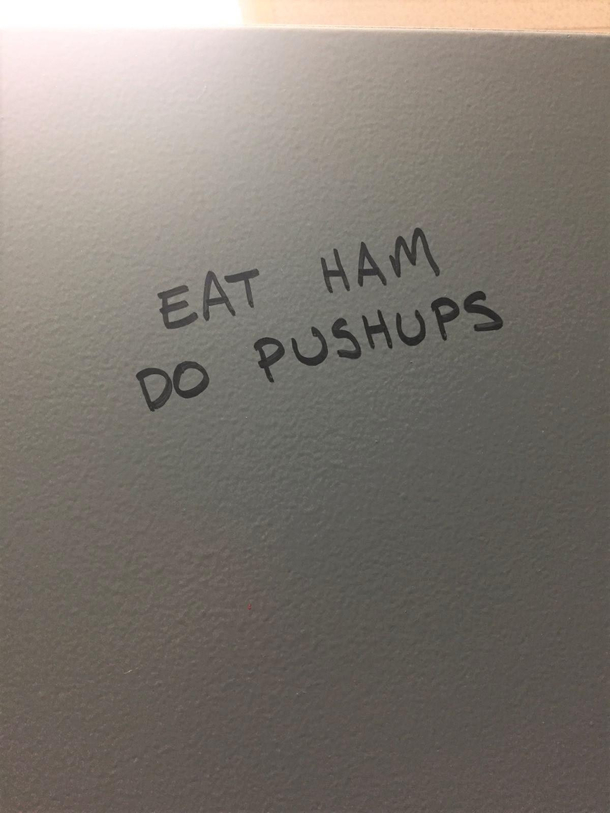 EAT HAM
DO PUSHUPS